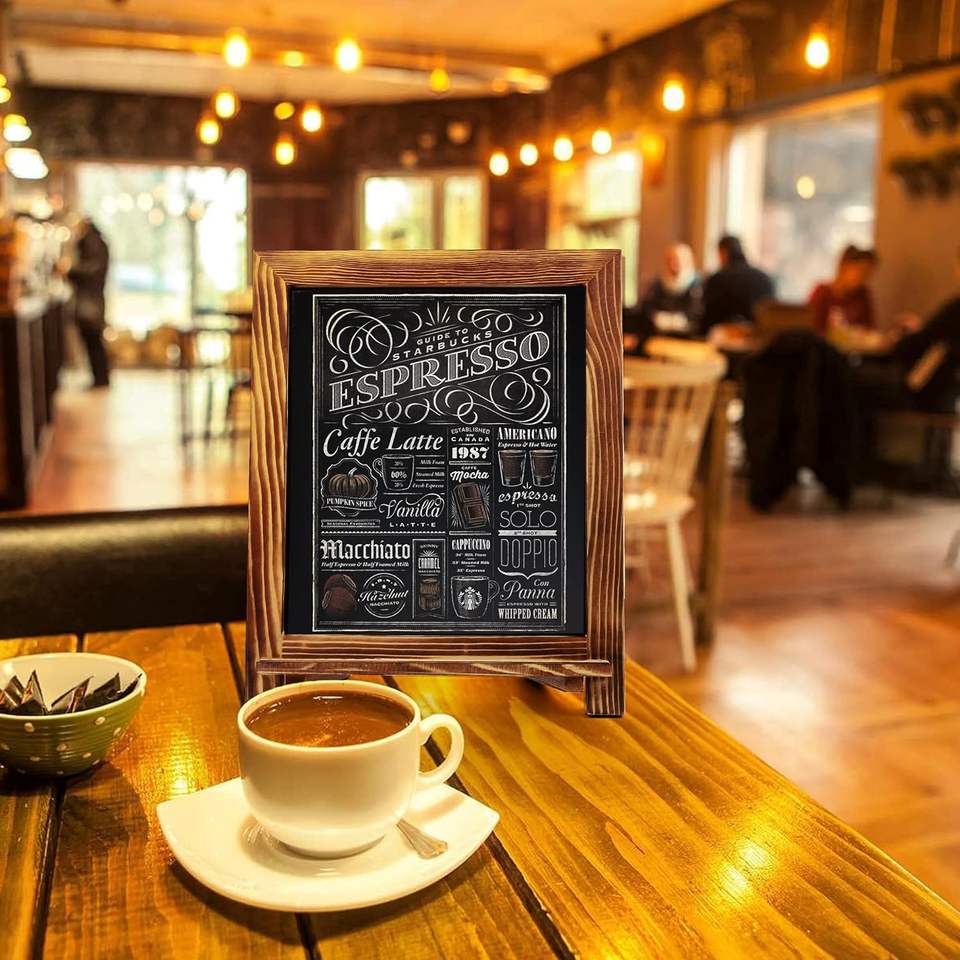 GUIDE TO
STARBUCKS
ESPRESSO
Caffe Latte
Milk Foam
Steamed Milk
Fresh Espresso
PUMPKIN SPICE
Vanilla
LATTE
SEASONAL FAVOURITES
ESTABLISHED
IN
CANADA
1987
CAFFE
Mocha
AMERICANO
Espresso & Hot Water
espresso
1ST SHOT
SOLO
2ND SHOT
DOPPIO
Con
Panna
ESPRESSO WITH
WHIPPED CREAM
Macchiato
Half Espresso & Half Foamed Milk
Hazelnut
MACCHIATO
CARAMEL
MACCHIATO
CAPPUCCINO
Milk Foam
Steamed Milk
Espresso